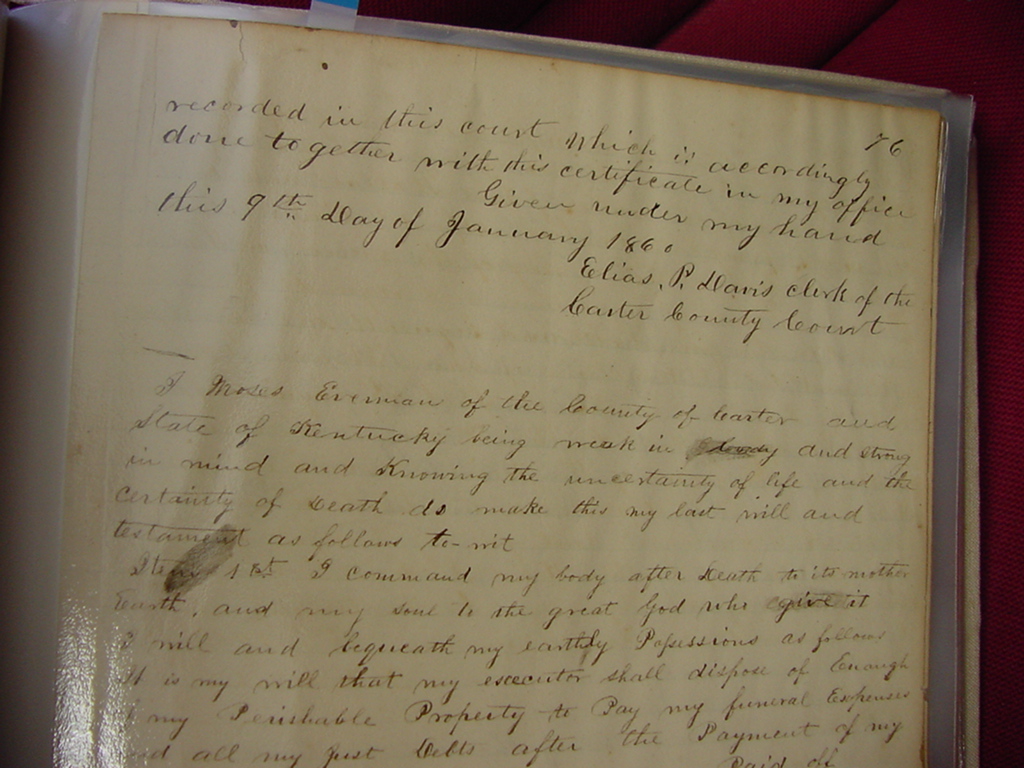 76
recorded in this court which is accordingly
done together with this certificate in my office
Given under my hand
this 9th day of January 1860
Elias P Davis clerk of the
Carter County Court
I Moses Evrman of the County of Carter and
State of Kentucky being weak in body and strong
in mind and Knowing the uncertainty of life and the
Certainty of death do make this my last will and
testament as follows to-wit
Item 1st I command my body after death to its mother
Earth, and my soul to the great God who give it
I will and bequeath my earthly Possessions as follows
It is my will that my executor shall dispose of Enough
of my Perishable Property to Pay my funeral Expenses
and all my just debts after the Payment of my
Paid of